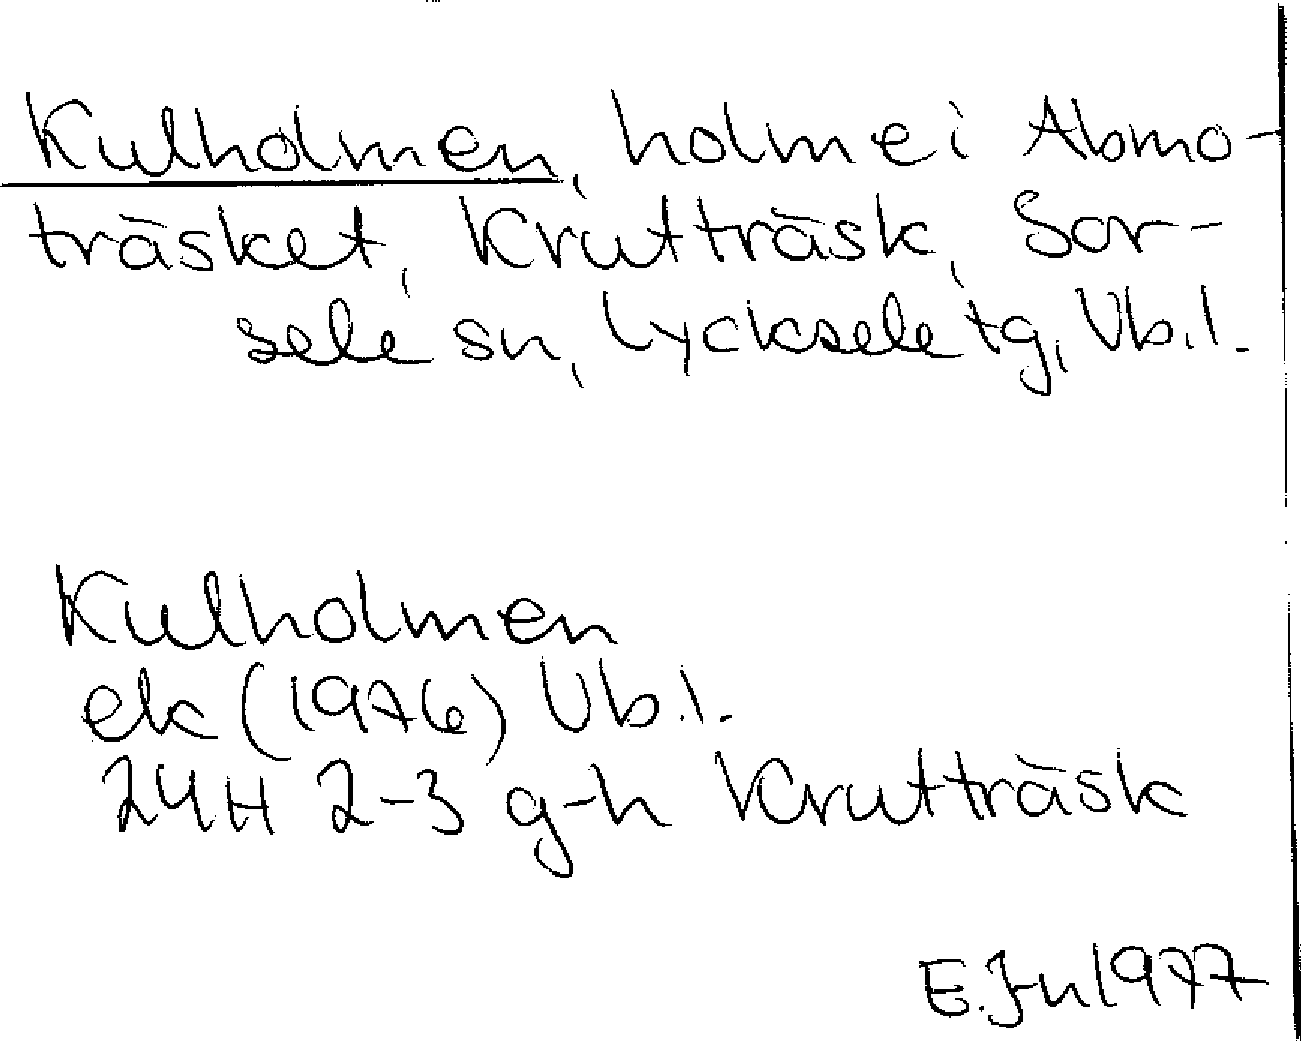 Kulholmen, holme i Abmo-
träsket, Krutträsk, Sor-
sele sn, Lycksele tg, Vb.l.
Kulholmen
ek (1976) Vb.l.
24H 2-3 g-h Krutträsk
E.Jn 1977